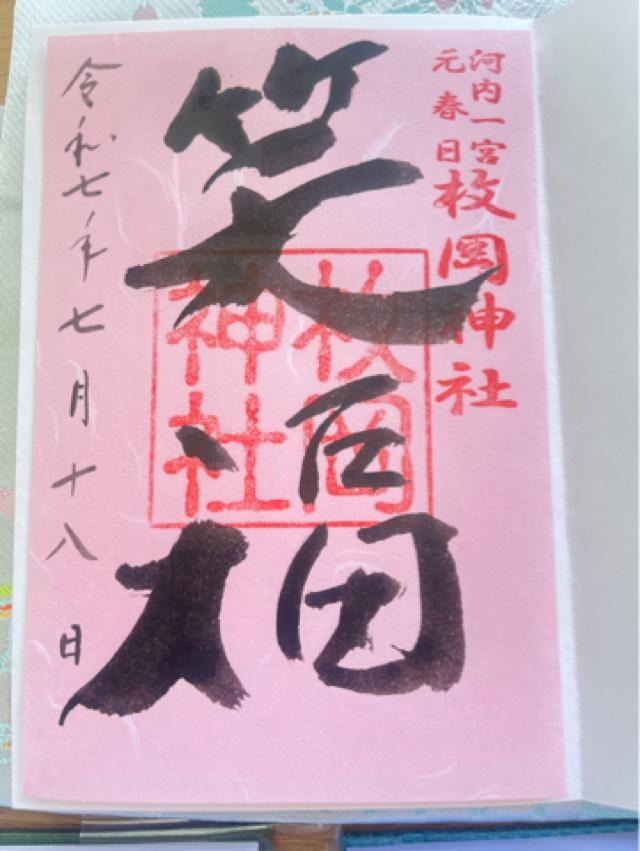 河内一宮
元春日
枚岡神社
笑福
枚岡
神社
令和七年七月十八日